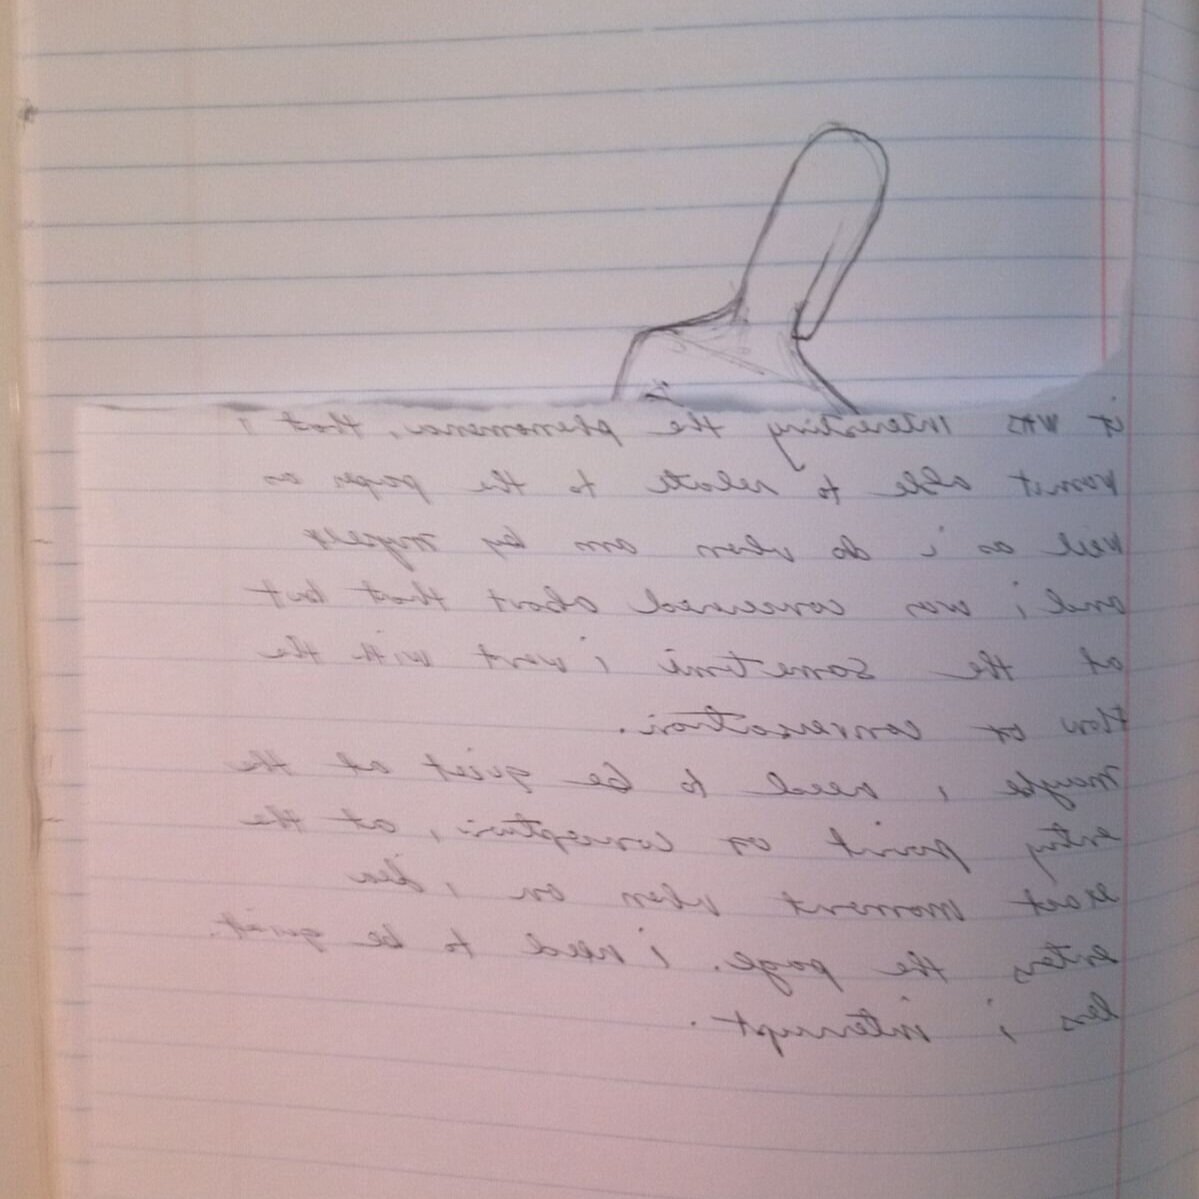 it was interesting the phenomena, that i
wasnt able to relate to the paper as
well as i do when am by myself
and i was concerned about that but
at the sometime i went with the
flow of conversation.
maybe i need to be quiet at the
entry point of conception, at the
exact moment when an idea
enters the page. i need to be quiet.
less i interrupt.